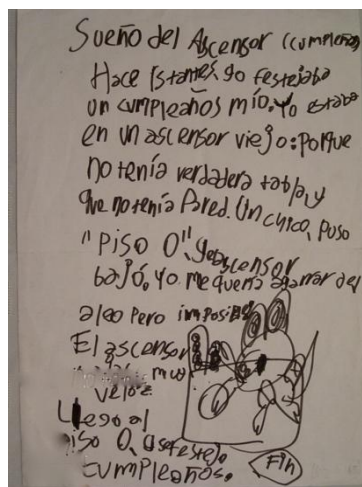 Sueño del Ascensor (cumpleaños)
Hace instantes, yo festejaba
un cumpleaños mío. Yo estaba
en un ascensor viejo: porque
no tenía verdadera tabla, y
que no tenía Pared. Un chico, puso
"PISO 0", y el ascensor
bajó. Yo me quería agarrar de
algo pero imposible
El ascensor
muy
veloz
Llegó al
piso 0,
cumpleaños.
Fin